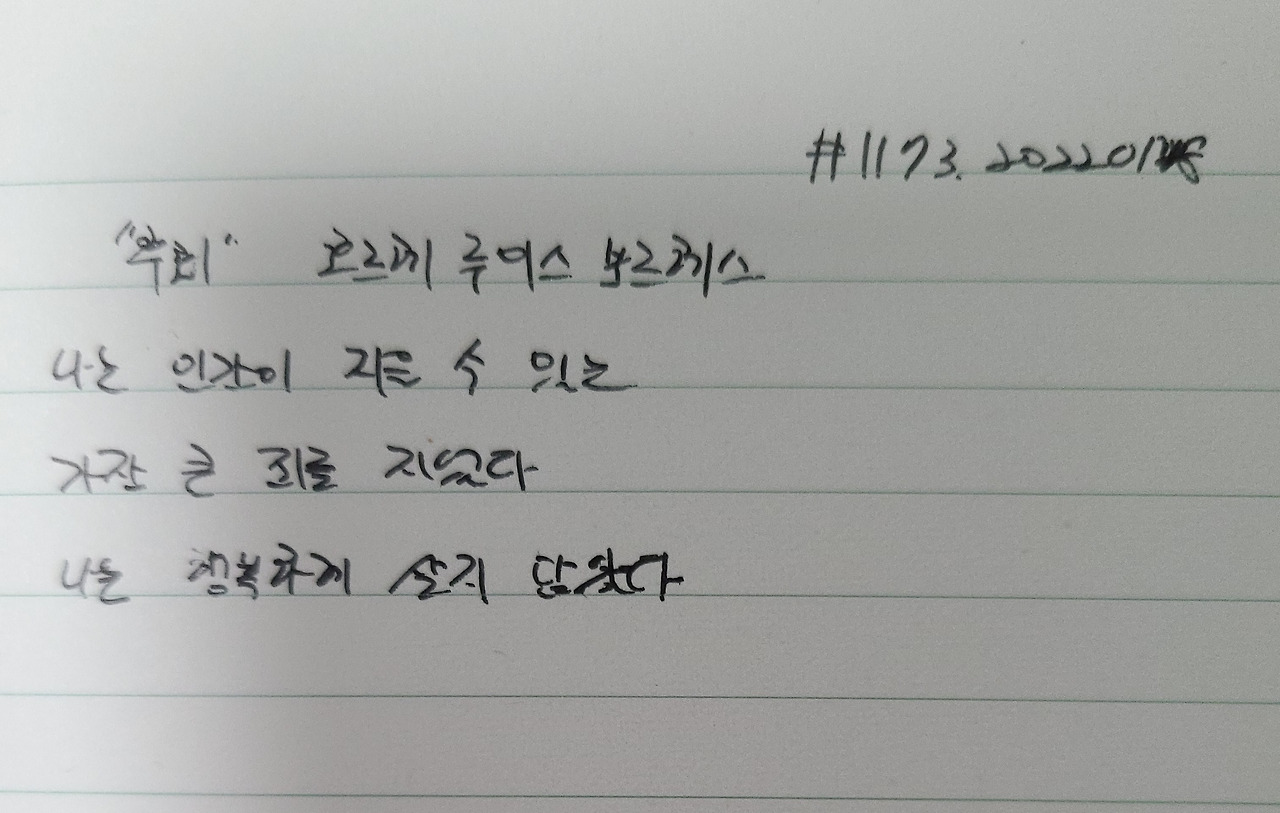 #1173.
"후회" 호르헤 루이스 보르헤스
나는 인간이 지을 수 있는
가장 큰 죄를 지었다
나는 행복하게 살지 않았다